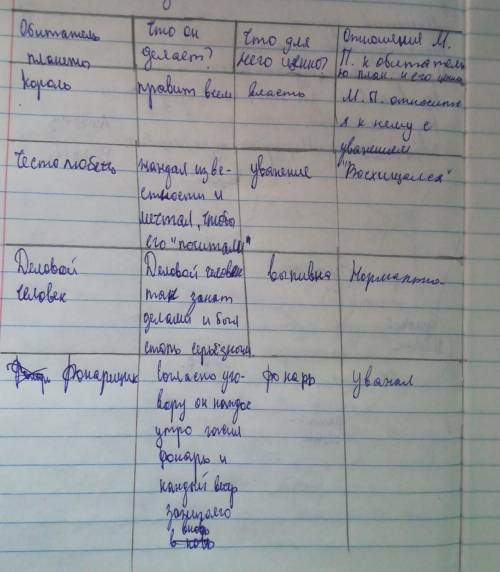 Обитатель
планеты
Что он
делает?
Что для
него ценно?
Отношения М.
П. к обитател
ю план. и его
Король
правит всем
власть
М. П. относит
я к нему с
уважением
Честолюбец
жандал изве-
стности и
мечтал, чтобы
его "почитали"
уважение
"Восхищался"
Деловой
человек
Деловой человек
так занят
делами и был
столь серьёзной.
выпивка
Нормально
Фонарщик
согласно уго-
вору он каждое
утро гасил
фонарь и
каждый вечер
зажигал
вновь
фонарь
уважал